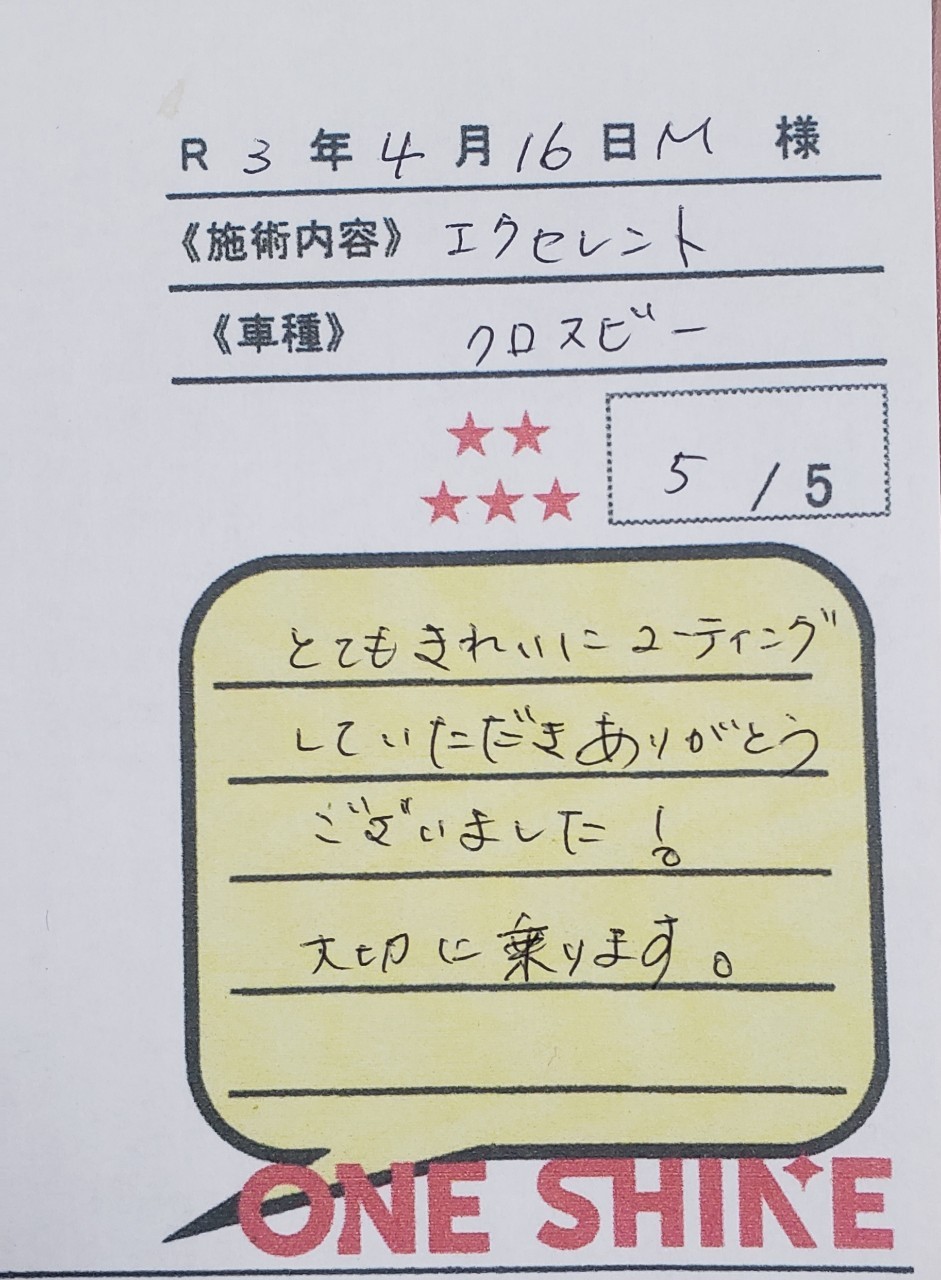 R 3 年 4 月 16 日 M 様
《施術内容》 エクセレント
《車種》 クロスビー
★★
★★★
5 / 5
とてもきれいにコーティング
していただきありがとう
ございました!
大切に乗ります。
ONE SHINE